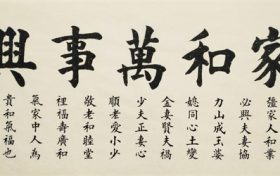 家和萬事興
強家人和業
必興夫妻協
力山成玉婆
媳同心土變
金妻賢夫禍
少夫正妻心
順老愛小少
敬老和睦堂
裡福壽廣和
氣家中人為
貴和氣福也